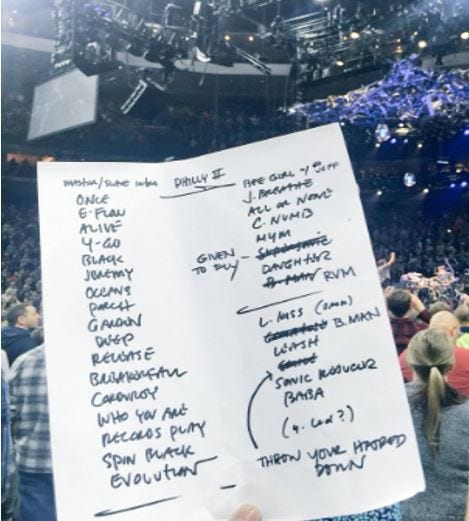 MASTER/SLAVE INTRO
ONCE
E. FLOW
ALIVE
Y-GO
BLACK
JEREMY
OCEANS
PORCH
GARDEN
DEEP
RELEASE
BREAKERFALL
CORDUROY
WHO YOU ARE
RECORDS PLAY
SPIN BLACK
EVOLUTION
PHILLY II
BEE GIRL w/ JEFF
J. BREATHE
ALL OR NONE
C. NUMB
MYM
GIVEN TO FLY - SUPERSONIC
DAUGHTER
B. MAN RVM
L. KISS (OMM)
B. MAN
LEASH
SONIC REDUCER
BABA
(Y. Led?)
THROW YOUR HATRED
DOWN